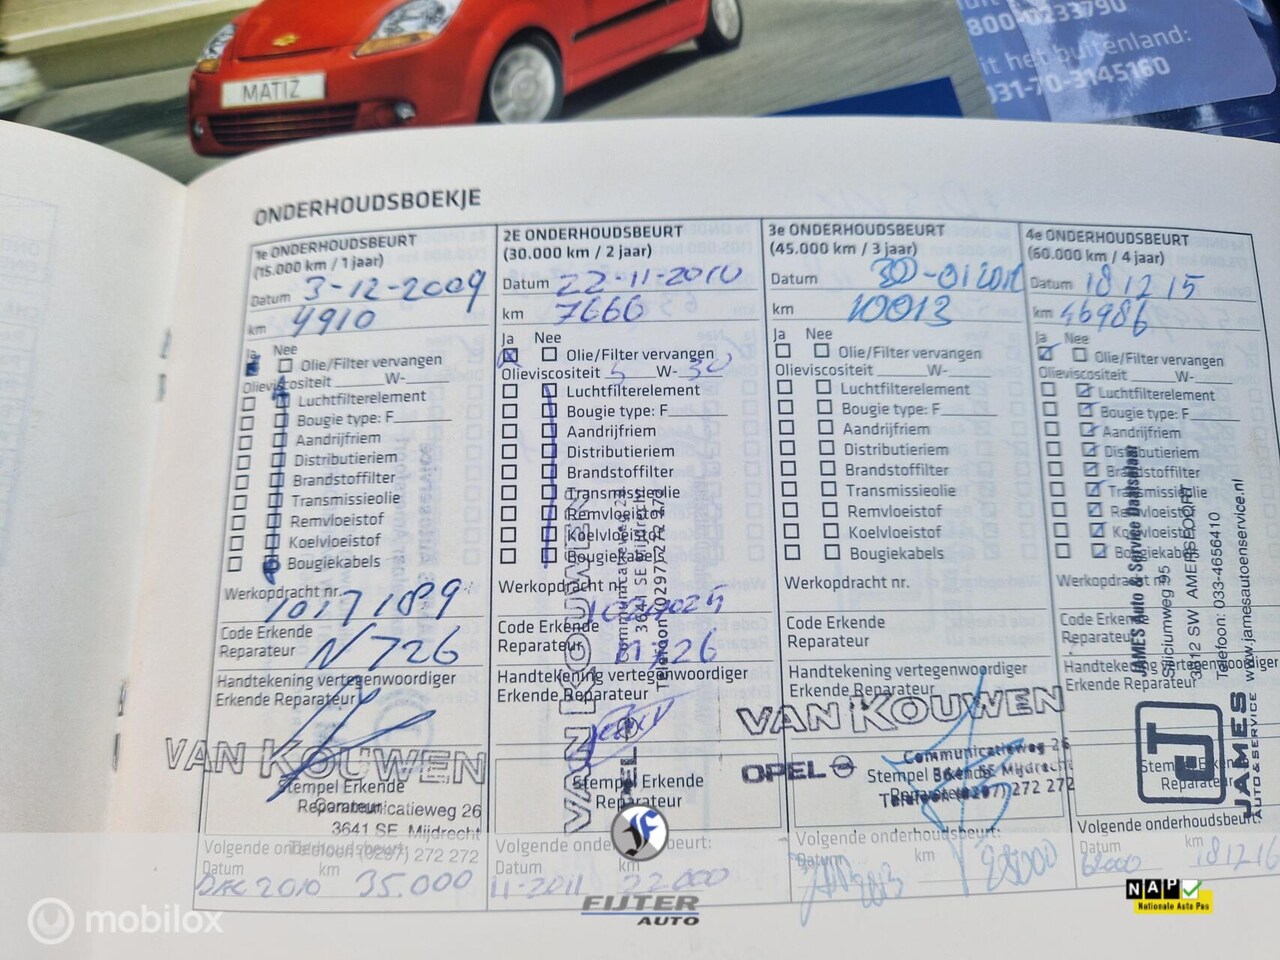 MATIZ
800-0233790
it het buitenland:
031-70-3145160
ONDERHOUDSBOEKJE
1e ONDERHOUDSBEURT
(15.000 km / 1 jaar)
Datum 3-12-2009
km 4910
Ja Nee
Olie/Filter vervangen
Olieviscositeit W-
Luchtfilterelement
Bougie type: F
Aandrijfriem
Distributieriem
Brandstoffilter
Transmissieolie
Remvloeistof
Koelvloeistof
Bougiekabels
Werkopdracht nr.
10171189
Code Erkende
Reparateur N726
Handtekening vertegenwoordiger
Erkende Reparateur
VAN KOUWEN
Stempel Erkende
Reparateur
Communicatieweg 26
3641 SE Mijdrecht
Telefoon (0297) 272 272
Volgende onderhoudsbeurt:
Datum km
Dec 2010 35.000
2E ONDERHOUDSBEURT
(30.000 km / 2 jaar)
Datum 22-11-2010
km 7666
Ja Nee
Olie/Filter vervangen
Olieviscositeit 5 W-30
Luchtfilterelement
Bougie type: F
Aandrijfriem
Distributieriem
Brandstoffilter
Transmissieolie
Remvloeistof
Koelvloeistof
Bougiekabels
Werkopdracht nr.
Code Erkende
Reparateur N726
Handtekening vertegenwoordiger
Erkende Reparateur
VAN KOUWEN
OPEL
Communicatieweg 26
3641 SE Mijdrecht
Telefoon (0297) 272 272
Stempel Erkende
Reparateur
Volgende onderhoudsbeurt:
Datum km
11-2011 22000
3e ONDERHOUDSBEURT
(45.000 km / 3 jaar)
Datum 30-01 2012
km 10013
Ja Nee
Olie/Filter vervangen
Olieviscositeit W-
Luchtfilterelement
Bougie type: F
Aandrijfriem
Distributieriem
Brandstoffilter
Transmissieolie
Remvloeistof
Koelvloeistof
Bougiekabels
Werkopdracht nr.
Code Erkende
Reparateur
Handtekening vertegenwoordiger
Erkende Reparateur
VAN KOUWEN
OPEL
Communicatieweg 26
3641 SE Mijdrecht
Telefoon (0297) 272 272
Stempel Erkende
Reparateur
Volgende onderhoudsbeurt:
Datum km
25000
4e ONDERHOUDSBEURT
(60.000 km / 4 jaar)
Datum 18 12 15
km 46986
Ja Nee
Olie/Filter vervangen
Olieviscositeit W-
Luchtfilterelement
Bougie type: F
Aandrijfriem
Distributieriem
Brandstoffilter
Transmissieolie
Remvloeistof
Koelvloeistof
Bougiekabels
Werkopdracht nr.
Code Erkende
Reparateur
Handtekening vertegenwoordiger
Erkende Reparateur
JAMES Auto & Service
Siliciumweg 95
3812 SW AMERSFOORT
Telefoon: 033-4656410
www.jamesautoenservice.nl
J
JAMES
AUTO & SERVICE
Stempel Erkende
Reparateur
Volgende onderhoudsbeurt:
Datum km
62000 18 12 16
mobilox
FIJTER
AUTO
NAP
Nationale Auto Pas